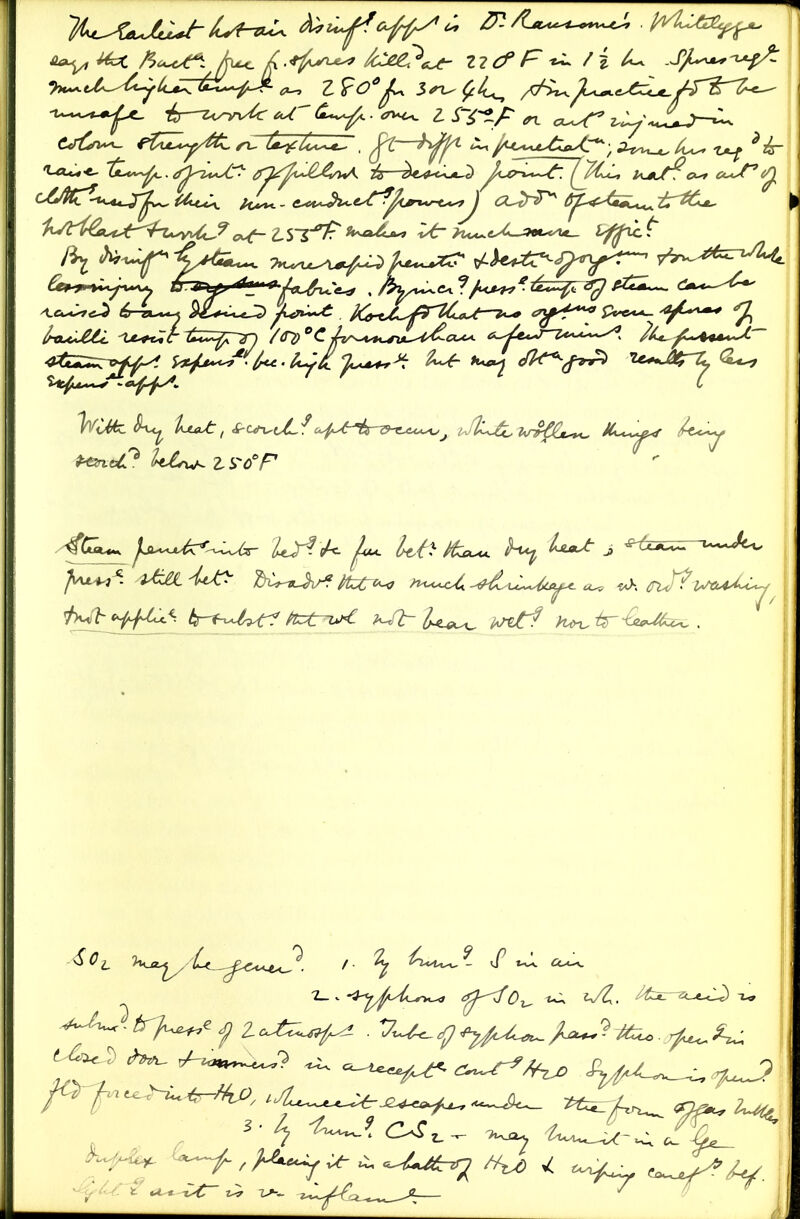 The Earliest hot air disinfg appts is Dr. Ransome's. Whitelegge
says tht Bacta. free fr. spores killd at 220° F in 1½ hr. Spores reqe
much higher tempe as 280° fr 3 or 4 hrs, & in practice fd to be
unsafe to work at temp. over 255° F or arts injured in
colour strength or texture. Gt diffy in penetratn; some hrs reqd to
raise temp. of intr. of pillow to desired point. (This natl. as arts of
clothg used for their non-conductg powers) addn of steam to the
hot blast & workg at 255° F. makes it much more effict.
By disinfn by steam more rapid penetrn & destrn of orgsms & on the whole
less injury to fabrics. By incrg presse temp of steam can be
raised to any desired point. Koch fd that no orgsms even spores of
bacilli resist temp of 100° C for more than a few mins. The present
steam appts expensve bec. high presse. but may obtn good results by less
expensve appts.
With dry heat, scorchg apt to occur, white wollen things being
scorchd below 250° F
Steam penetrs into bedg &c far betr than dry heat; steam under
presse still betr. Disadve tht as much shrinkage as w. ordy washing,
& not applice to substs tht wl not bear wetg nor to leather.
SO2 may be generd. 1. by burng S in air
2. syphons of SO2 in wh. the acid is
submd to presse of 2 atmosps. Tube of syphon passd thro. openg in
closed door & immersd in a recepte contg H2O Syphon is opend
fld forced into H2O, whence it escapes under the form of gas bubbles
3. by burng CS2 - may burn it in a lge
duplex lamp, placing it in a bath of H2O & wiping carefly bef.
lightg as it is v. inflame